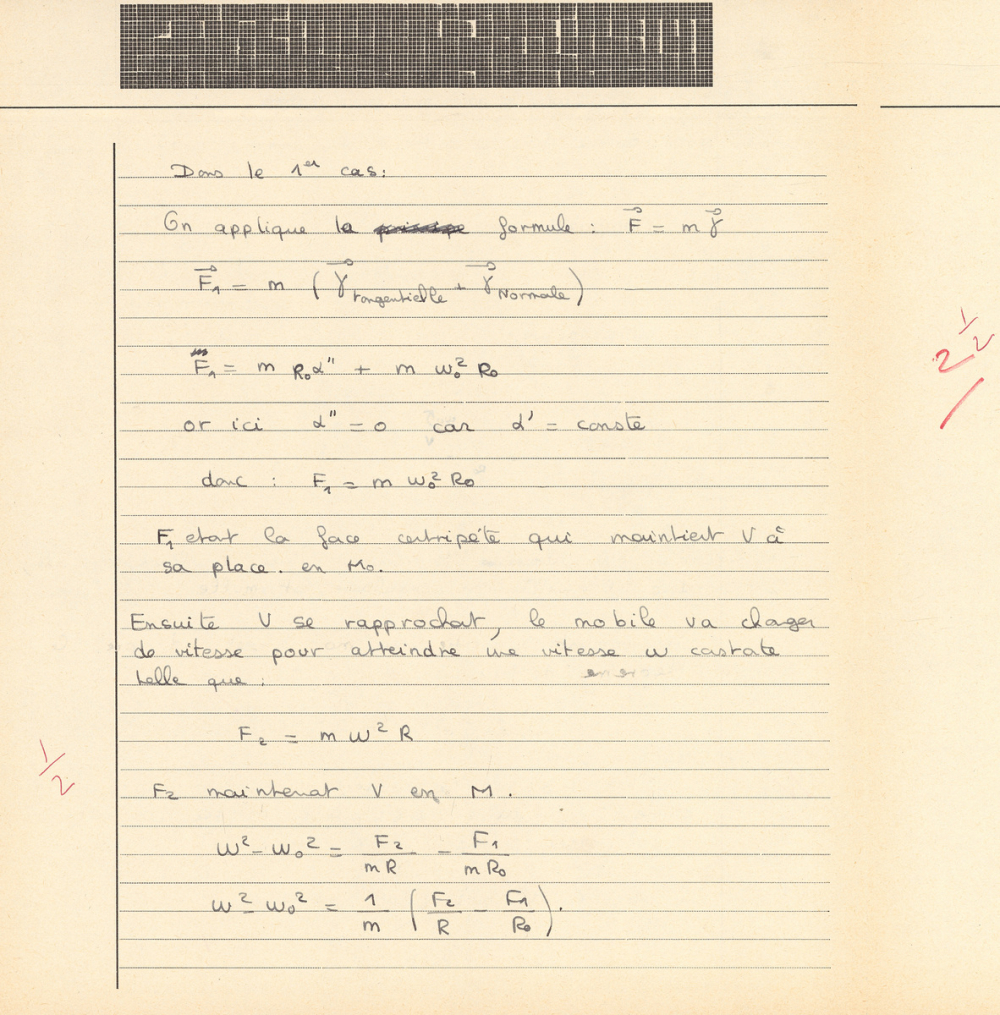 Dans le 1er cas:
On applique la formule : F⃗ = m γ⃗
F⃗₁ = m ( γ⃗ tangentielle + γ⃗ Normale )
F₁ = m R₀α" + m w₀² R₀
or ici α" = 0 car α' = conste
donc : F₁ = m w₀² R₀
F₁ etant la face centripéte qui maintient V à
sa place. en M₀.
Ensuite V se rapprochant, le mobile va changer
de vitesse pour atteindre une vitesse w constante
telle que :
F₂ = m w² R
F₂ maintenant V en M.
w² - w₀² = F₂/mR - F₁/mR₀
w² - w₀² = 1/m (F₂/R - F₁/R₀).
2 1/2
1/2